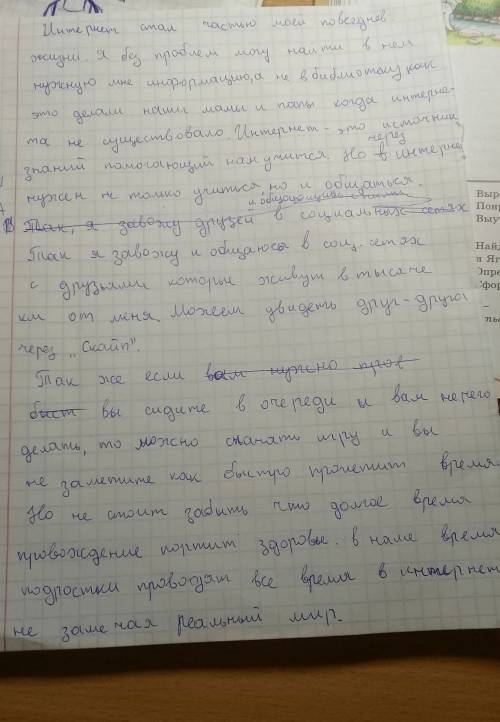 Интернет стал частью моей повседнев
жизни. Я без проблем могу найти в нем
нужную мне информацию, а не в библиотеку как
это делали наши мамы и папы когда интерне-
та не существовало. Интернет - это источник
знаний помогающий нам учится. Но через в интернет
нужен не только учиться, но и общаться.
и общаюсь
Так, я завожу друзей в социальных сетях
Так я завожу и общаюсь в соц. сетях
с друзьями которые живут в тысяче
км от меня. Можем увидеть друг-друга
через "Скайп".
Так же если вам нужно про
быст вы сидите в очереди и вам нечего
делать, то можно скачать игру и вы
не заметите как быстро пролетит время.
Но не стоит забыть что долгое время
провождение портит здоровье. в наше время
подростки проводят все время в интернет
не замечая реальный мир.
Выр
Попр
Выу
Найд
и Яг
Опре
Сфор